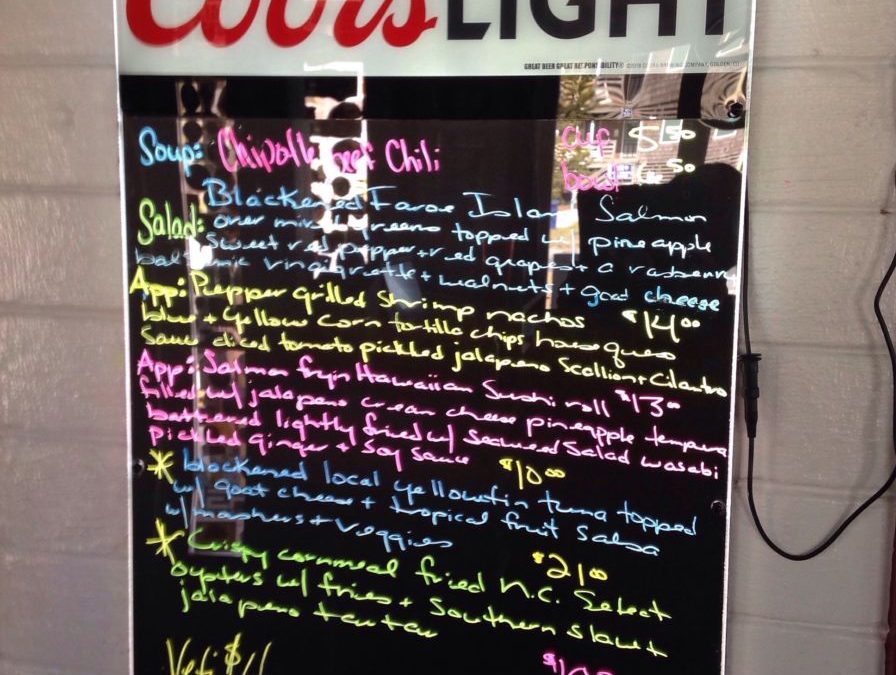 Coors LIGHT
GREAT BEER GREAT RESPONSIBILITY®
Soup: Chipotle beef Chili cup $5.50
bowl 6.50
Blackened Faroe Island Salmon
Salad: over mixed greens topped w/ pineapple
sweet red pepper + red grapes + a rasberry
balsamic vinaigrette + walnuts + goat cheese
App: Pepper grilled Shrimp nachos $14.00
blue + yellow corn tortilla chips
Sauce diced tomato pickled jalapeno Scallion + Cilantro
App: Salmon Hawaiian Sushi roll $13.00
filled w/ jalapeno cream cheese pineapple tempura
battered lightly fried w/ Seaweed Salad wasabi
pickled ginger + Soy Sauce
* blackened local yellowfin tuna topped
w/ goat cheese + tropical fruit Salsa
w/ mashers + veggies
* Crispy cornmeal fried N.C. Select $21.00
oysters w/ fries + Southern slaw +
jalapeno tartar